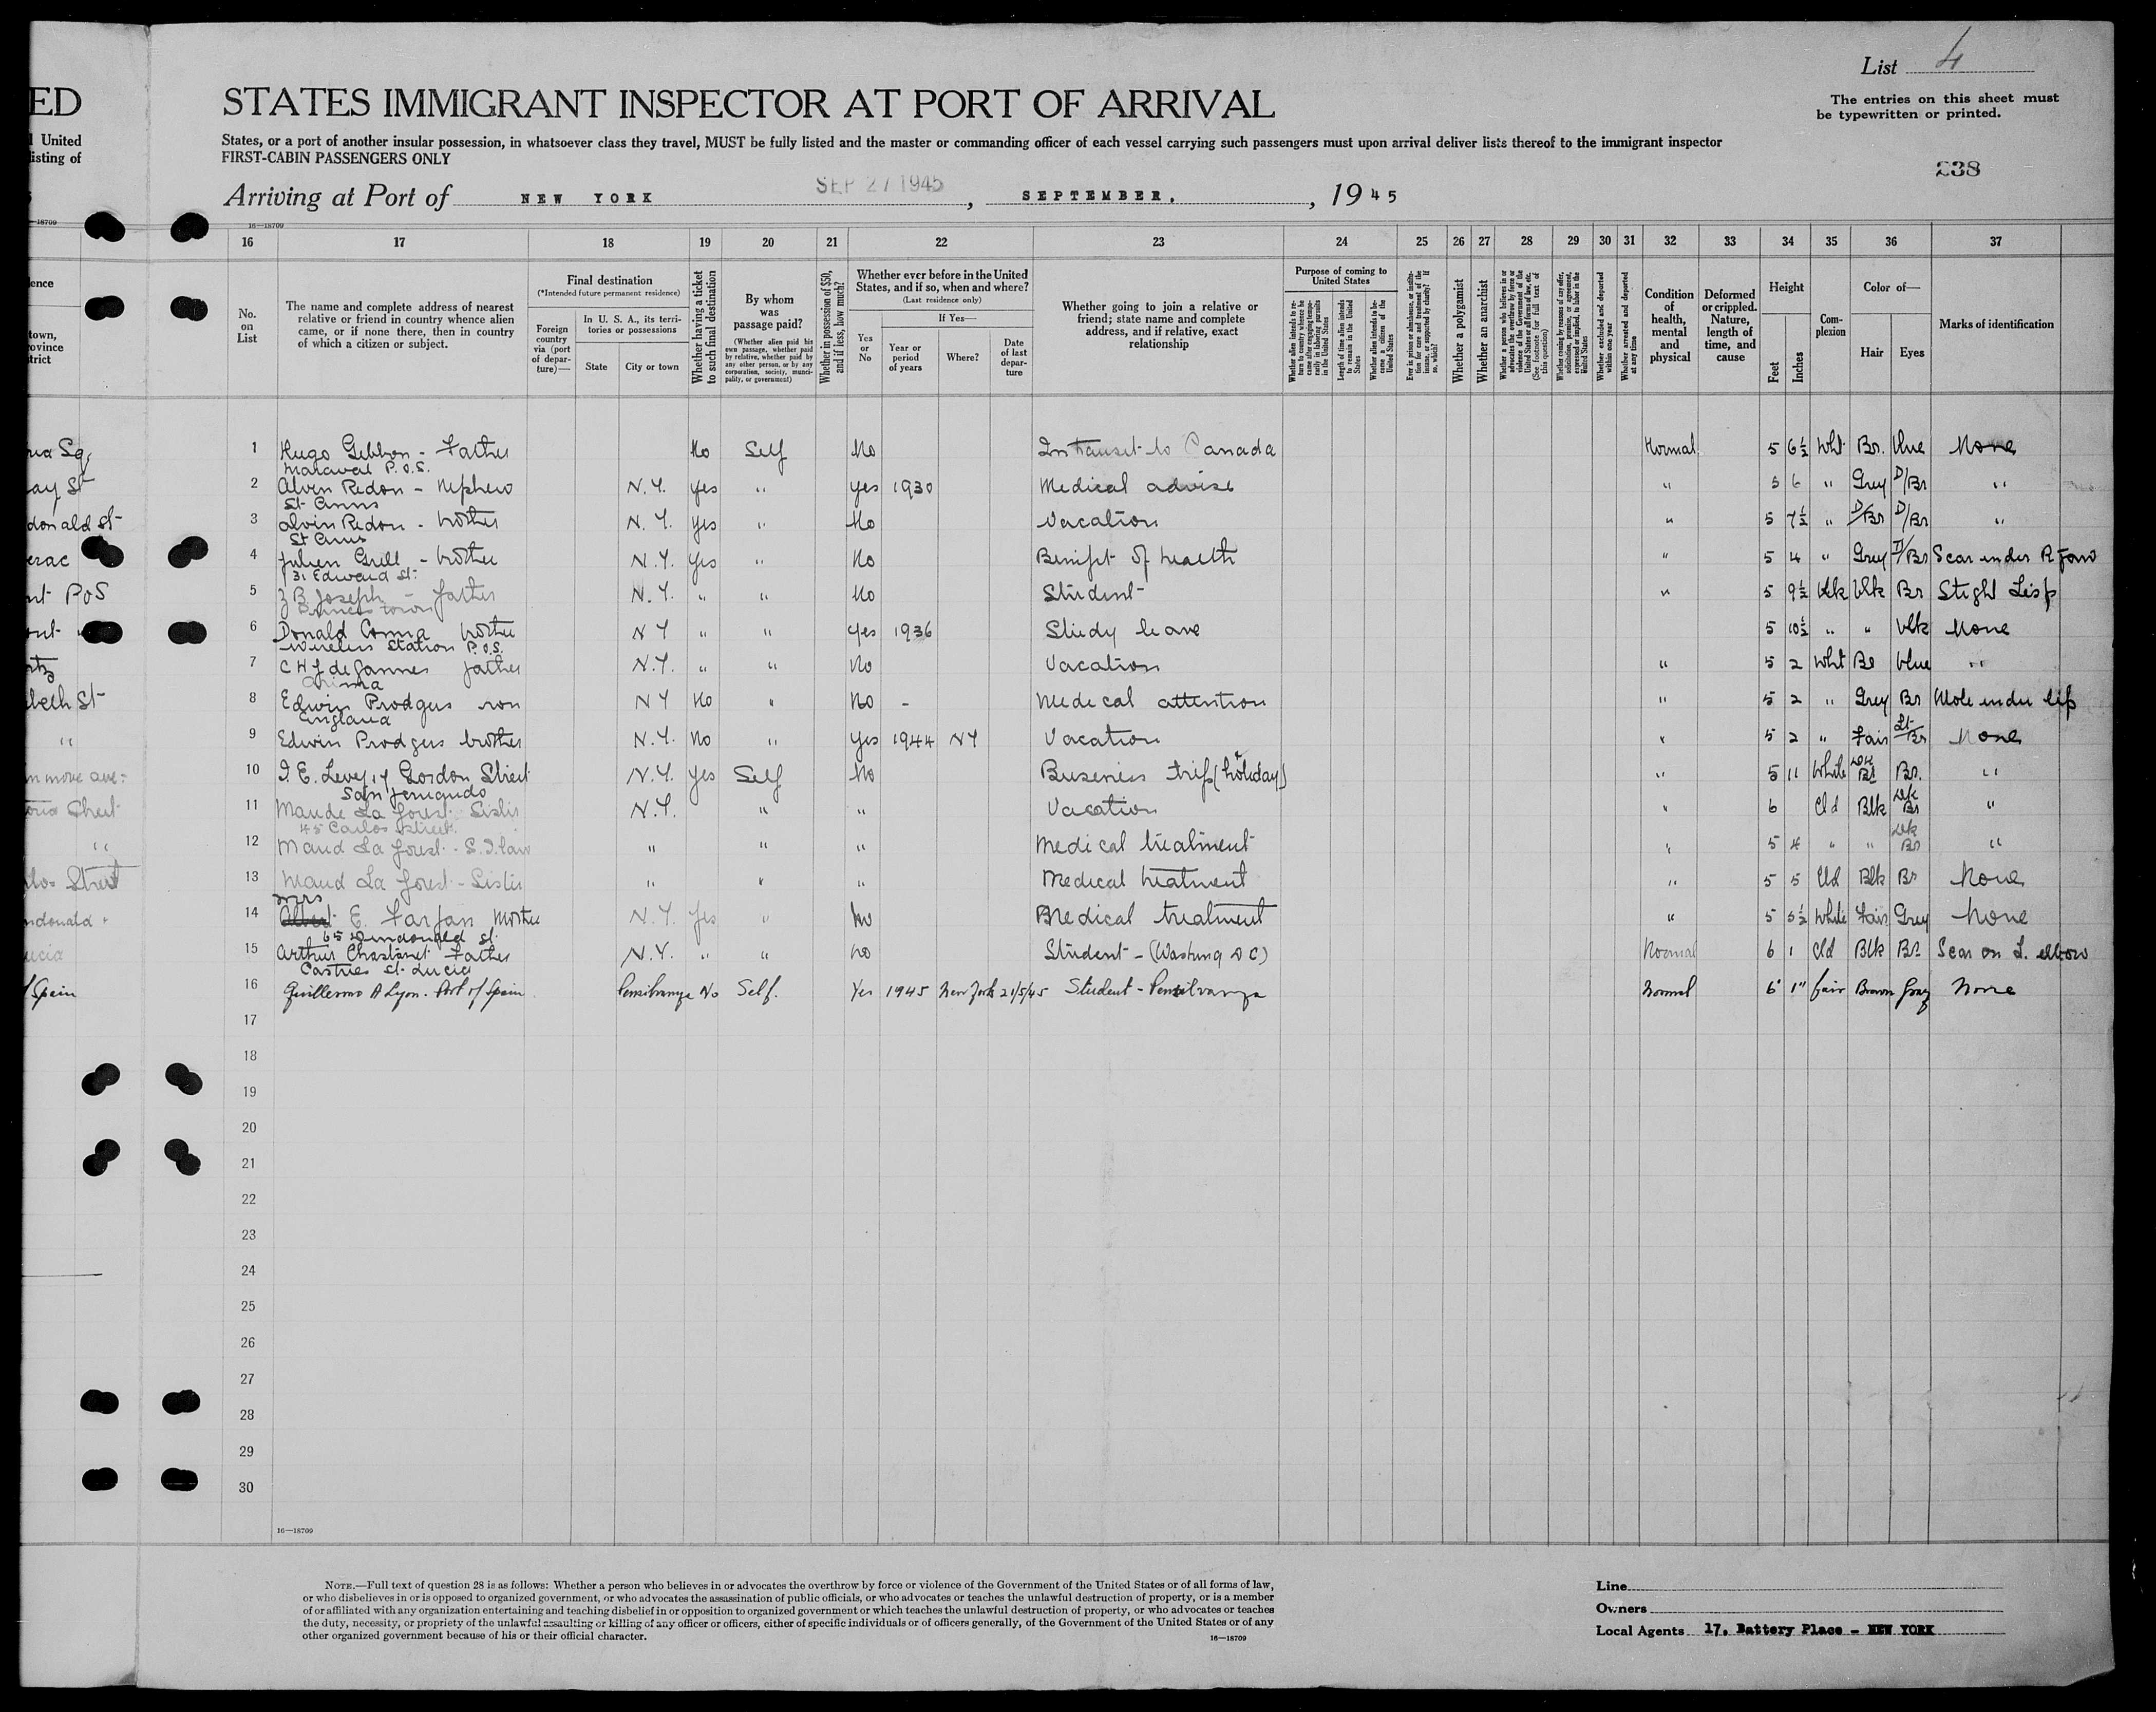 List 4
The entries on this sheet must
be typewritten or printed.
ED
STATES IMMIGRANT INSPECTOR AT PORT OF ARRIVAL
United
isting of
States, or a port of another insular possession, in whatsoever class they travel, MUST be fully listed and the master or commanding officer of each vessel carrying such passengers must upon arrival deliver lists thereof to the immigrant inspector
FIRST-CABIN PASSENGERS ONLY
238
Arriving at Port of NEW YORK SEP 27 1945, SEPTEMBER, 1945
16—18709
16 17 18 19 20 21 22 23 24 25 26 27 28 29 30 31 32 33 34 35 36 37
No. on List
The name and complete address of nearest relative or friend in country whence alien came, or if none there, then in country of which a citizen or subject.
Final destination
(*Intended future permanent residence)
Foreign country via (port of departure)—
In U. S. A., its territories or possessions
State
City or town
Whether having a ticket to such final destination
By whom was passage paid?
(Whether alien paid his own passage, whether paid by relative, whether paid by any other person, or by any corporation, society, municipality, or government)
Whether in possession of $50, and if less, how much?
Whether ever before in the United States, and if so, when and where?
(Last residence only)
If Yes—
Yes or No
Year or period of years
Where?
Date of last departure
Whether going to join a relative or friend; state name and complete address, and if relative, exact relationship
Purpose of coming to United States
Length of time alien intends to remain in the United States
Whether alien intends to become a citizen of the United States
Whether a polygamist
Whether an anarchist
Whether excluded and deported within one year
Whether arrested and deported at any time
Condition of health, mental and physical
Deformed or crippled. Nature, length of time, and cause
Height
Feet
Inches
Complexion
Color of—
Hair
Eyes
Marks of identification
1 Hugo Gibbon - Father No Self No In Transit to Canada Normal 5 6½ Wht Br. blue None
Maraval P.O.S.
2 Alvin Redon - Nephew N.Y. yes " yes 1930 Medical advise " 5 6 " Grey D/Br "
St Anns
3 Alvin Redon - brother N.Y. yes " No Vacation " 5 7½ " D/Br D/Br "
St Anns
4 Julien Grell - brother N.Y. Yes " No Benifit of health " 5 4 " Grey D/Br Scar under R Jaw
31 Edward St.
5 J B Joseph - father N.Y. " " No Student " 5 9½ blk blk Br Slight Lisp
Princes town
6 Donald brother N Y " " yes 1936 Study leave 5 10½ " " blk None
Wireless Station P.O.S.
7 C H J deGannes father N.Y. " " No Vacation " 5 2 Wht Br blue "
Arima
8 Edwin Prodgers son N Y No " No - Medical attention " 5 2 " Grey Br Mole under lip
England
9 Edwin Prodgers brother N.Y. No " yes 1944 NY Vacation " 5 2 " Fair Lt Br None
10 I. E. Levey 17 Gordon Street N.Y. yes Self No Business trip (holiday) " 5 11 White Dk Br Br. "
San Fernando
11 Maude La Forest Sister N.Y. " " Vacation " 6 Cld Blk Dk Br "
45 Carlos Street
12 Maud La Forest - S. I. law " " " Medical treatment " 5 4 " " Dk Br "
13 Maud La Forest - Sister " " " Medical treatment " 5 5 Cld Blk Br None
Mrs
14 E. Farfan Mother N.Y. Yes " No Medical treatment " 5 5½ White Fair Grey None
65 Dundonald St.
15 Arthur Chastanet Father N.Y. " " no Student - (Washing D C) Normal 6 1 Cld Blk Br Scar on L. elbow
Castries St. Lucia
16 Guillermo A Lyon. Port of Spain Pensilvanya No Self. Yes 1945 New York 21/5/45 Student - Pensilvanya Normal 6' 1" fair Brown Gray None
17
18
19
20
21
22
23
24
25
26
27
28
29
30
16—18709
NOTE.—Full text of question 28 is as follows: Whether a person who believes in or advocates the overthrow by force or violence of the Government of the United States or of all forms of law,
or who disbelieves in or is opposed to organized government, or who advocates the assassination of public officials, or who advocates or teaches the unlawful destruction of property, or is a member
of or affiliated with any organization entertaining and teaching disbelief in or opposition to organized government or which teaches the unlawful destruction of property, or who advocates or teaches
the duty, necessity, or propriety of the unlawful assaulting or killing of any officer or officers, either of specific individuals or of officers generally, of the Government of the United States or of any
other organized government because of his or their official character.
16—18709
Line
Owners
Local Agents 17, Battery Place - NEW YORK